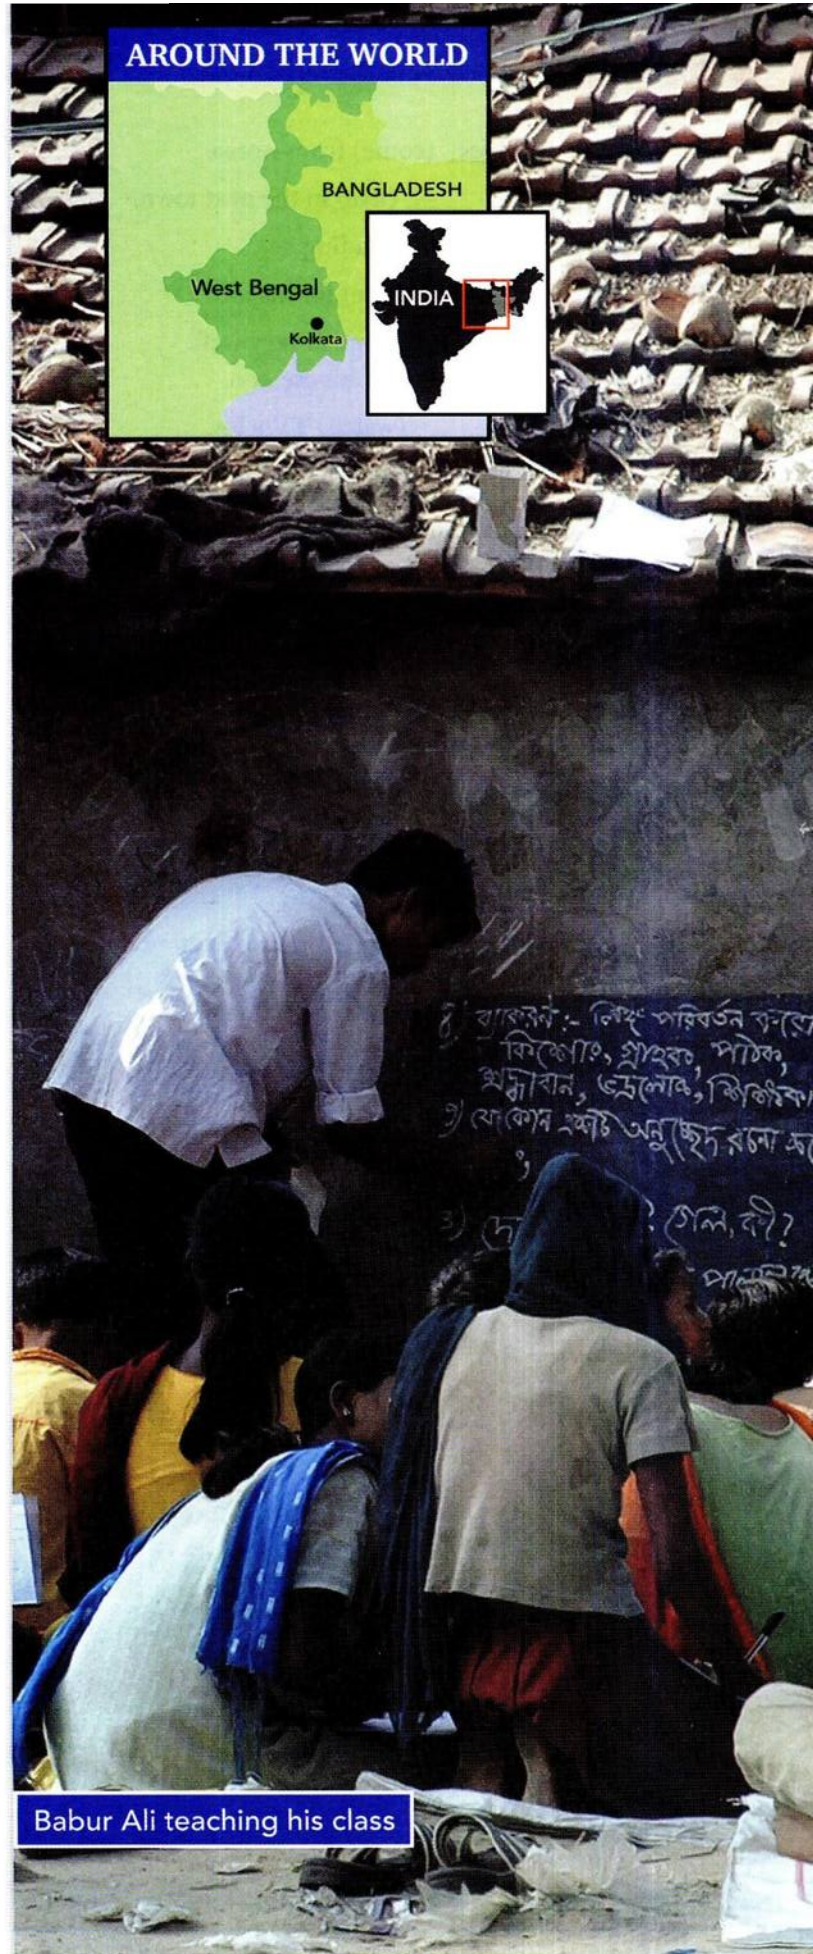 AROUND THE WORLD
BANGLADESH
West Bengal
Kolkata
INDIA
ব্যাকরণ :- লিঙ্গ পরিবর্তন করো
গ্রাহক, পাঠক,
শ্রদ্ধাবান, ভদ্রলোক,
যে কোন একটি অনুচ্ছেদ রচনা
? গেল, কী?
Babur Ali teaching his class